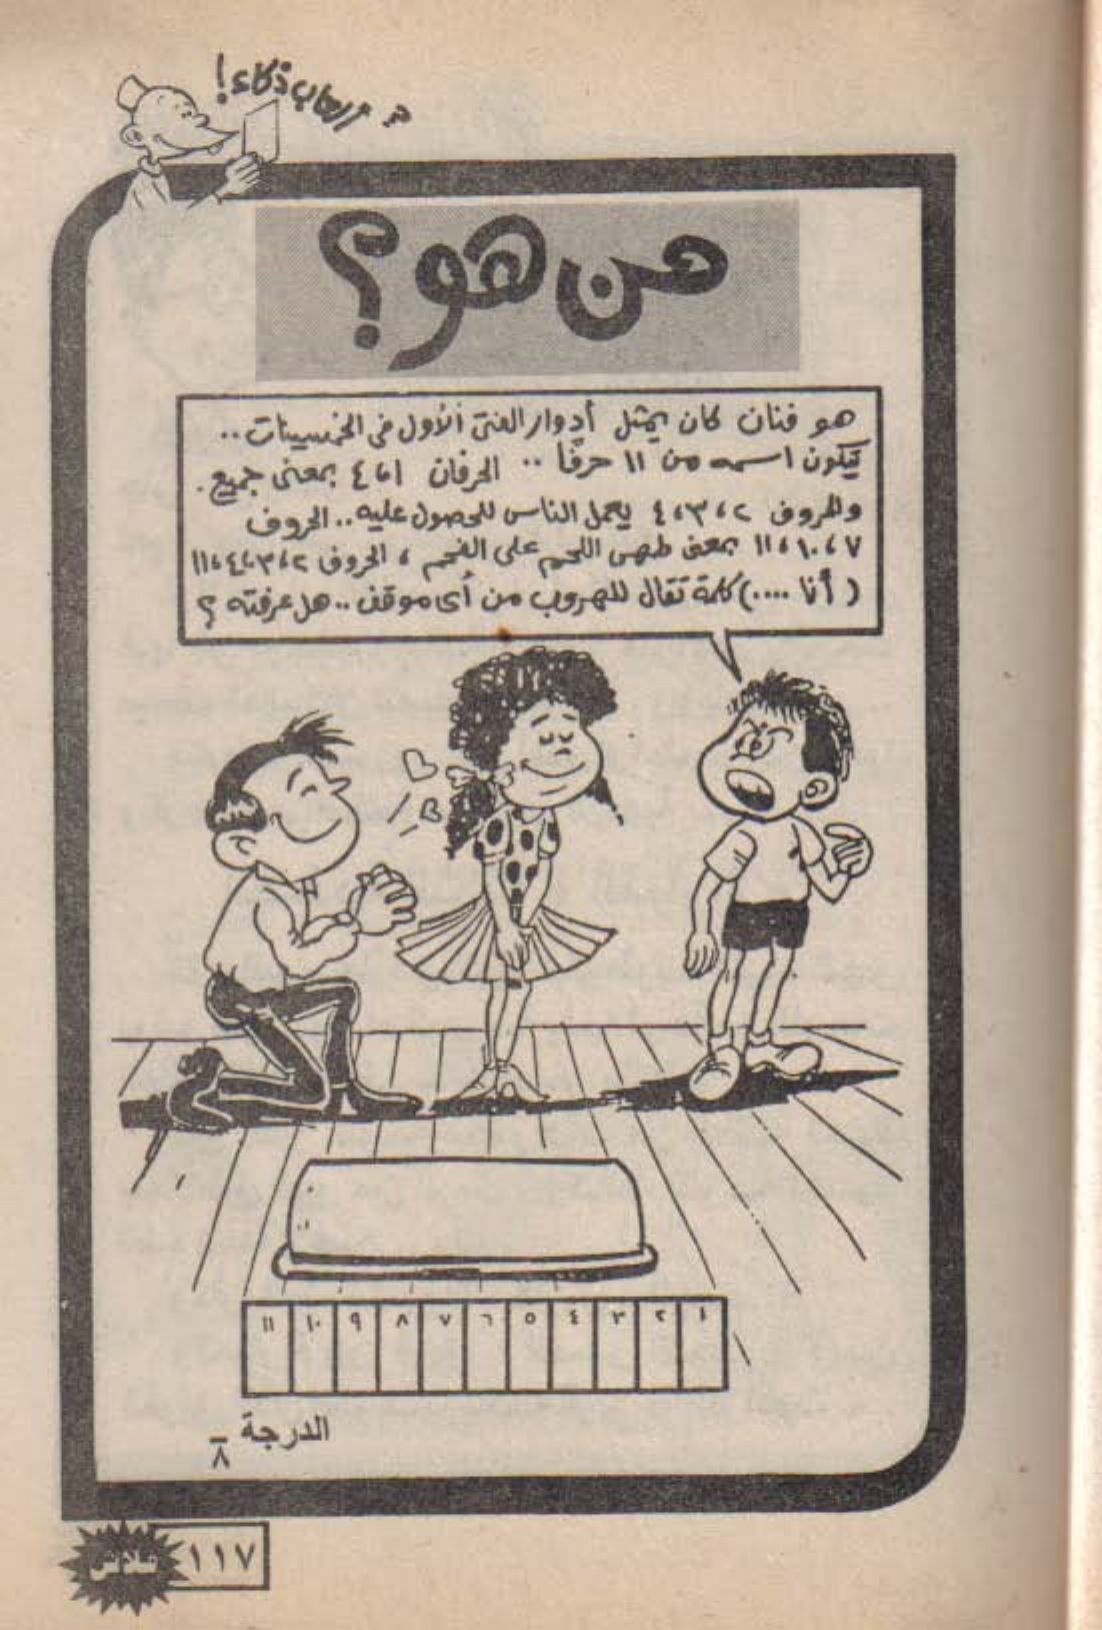 ألعاب ذكاء!
من هو؟
هو فنان كان يمثل أدوار الفتى الأول فى الخمسينات..
يتكون اسمه من ١١ حرفًا .. الحرفان ١، ٤ بمعنى جميع.
والحروف ٢، ٣، ٤ يعمل الناس للحصول عليه.. الحروف
٧، ١٠، ١١ بمعنى طهى اللحم على الفحم، الحروف ٢، ٣، ٤، ١١
(أنا ....) كلمة تقال للهروب من أى موقف.. هل عرفته؟
١ ٢ ٣ ٤ ٥ ٦ ٧ ٨ ٩ ١٠ ١١
الدرجة
٨
١١٧ فلاش